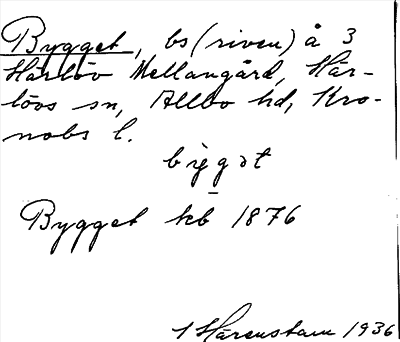 Bygget, bs (riven) å 3
Härlöv Mellangård, Här-
lövs sn, Allbo hd, Kro-
nobs l.
bygət
Bygget kb 1876
1 Härenstam 1936